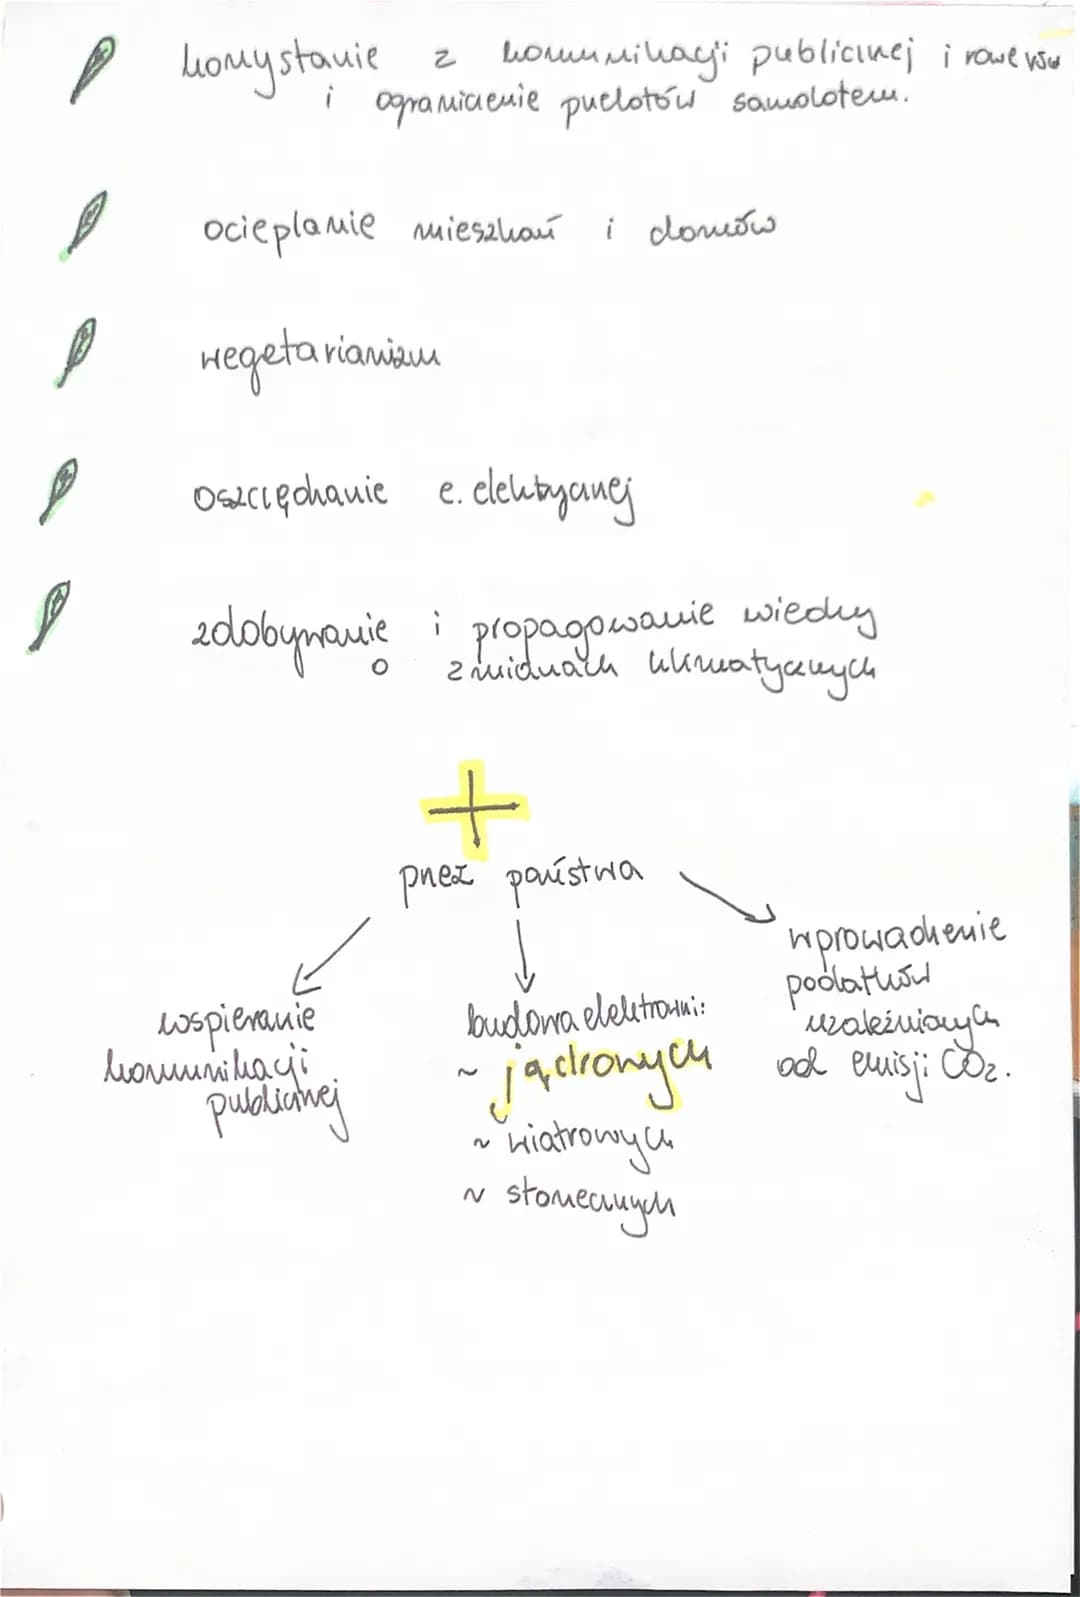 korzystanie z komunikacji publicznej i rowerów
i ograniczenie przelotów samolotem.
ocieplanie mieszkań i domów
wegetarianizm
oszczędzanie e. elektrycznej
zdobywanie i propagowanie wiedzy
o zmianach klimatycznych
przez państwa
wspieranie
komunikacji
publicznej
budowa elektrowni:
~ jądrowych
~ wiatrowych
~ słonecznych
wprowadzenie
podatków
uzależnionych
od emisji CO2.